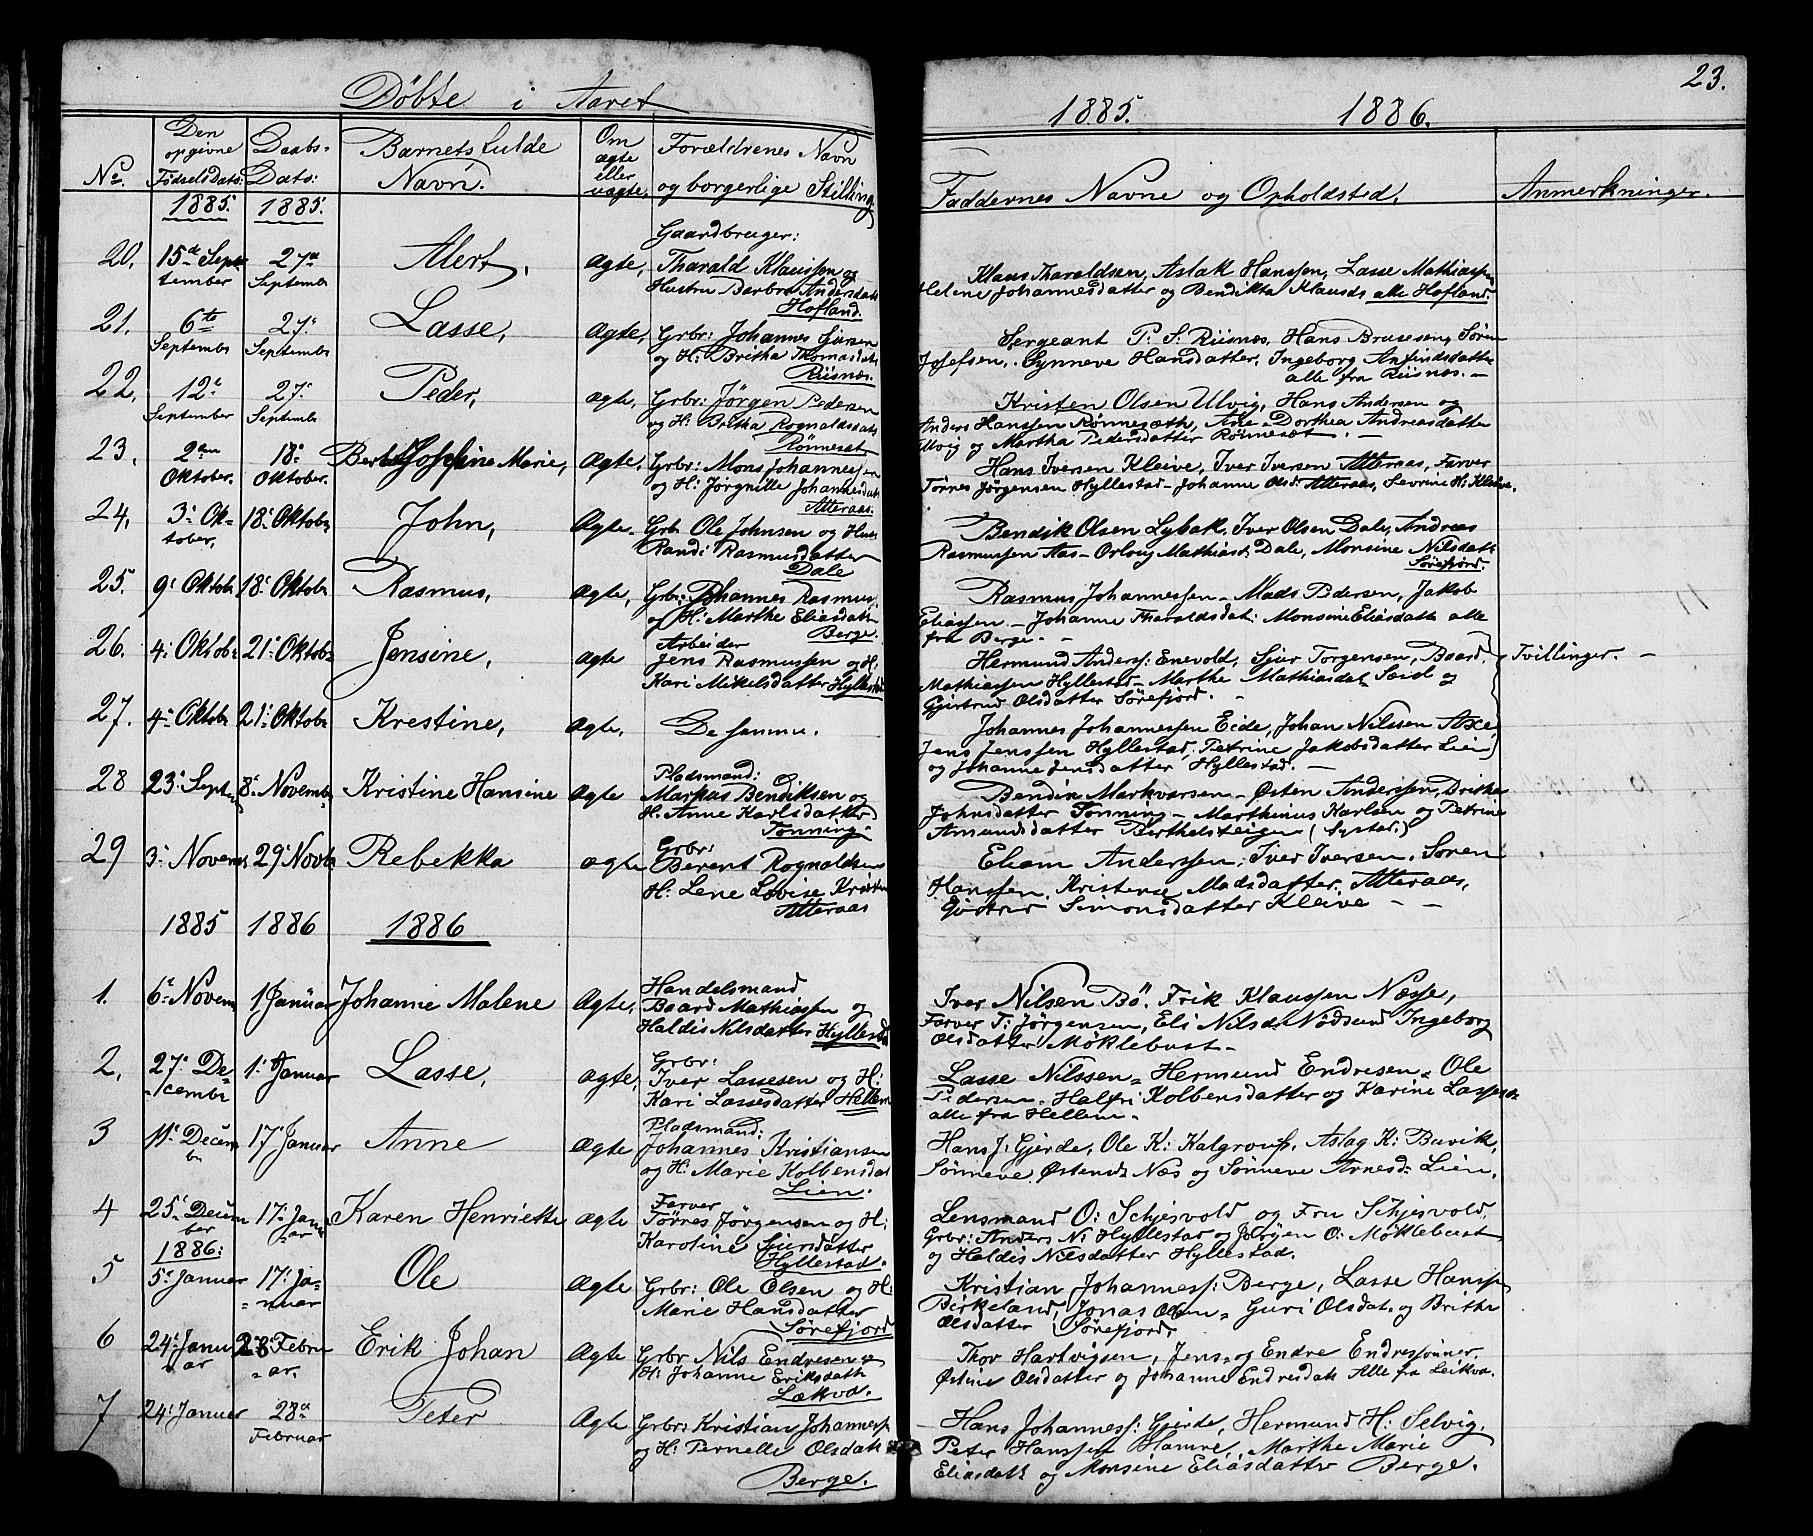 23.
Döbte i Aaret 1885. 1886.
No.
Den opgivne Födsels Dato:
Daabs-Dato:
Barnets fulde Navn.
Om ægte eller uægte,
Forældrenes Navn og borgerlige Stilling
Faddernes Navne og Opholdsted.
Anmerkninger.
1885. 1885.
20. 15de September 27de September Alert, Ægte,
Gaardbruger:
Tharald Klaussen og
Hustru Barbro Andersdatr
Hofland.
Klaus Tharaldsen, Aslak Hanssen, Lasse Mathiassen
Helene Johannesdatter og Bendikta Klausdr alle Hofland.
21. 6te Septembr 27. Septembr Lasse, Ægte,
Grbr: Johannes
og H: Britha Thomasdatr
Riisnæs.
Sergeant P. S. Riisnæs, Hans Brusesen, Sören
Josefsen. Synneve Hansdatter, Ingeborg Anfindsdatter
alle fra Riisnæs. —
22. 12te September 27. Septembr Peder, ægte,
Grbr: Jørgen Pedersen
og H: Britha Rognaldsdatr
Rönnesæt
Kristen Olsen Ulvig, Hans Andersen og
Anders Hanssen Rönnesæth, Ane Dorthea Andreasdatter
Ulvig og Martha Pedersdatter Rönnesæt. —
23. 2den Oktober. 18. Oktober. Josefine Marie, Ægte,
Grbr: Mons Johannessen
og H: Jørgnille Johannesdatr
Atteraas.
Hans Iversen Kleive, Iver Iversen Atteraas, Farver
Törres Jørgensen Hyllestad — Johanne Olsd. Atteraas, Sevrine H: Kleive.
24. 3. Oktober, 18. Oktobr John, Ægte.
Grb. Ole Johnsen og Hus
Randi Rasmusdatter
Dale
Bendik Olsen Lybak, Iver Olsen Dale, Andreas
Rasmussen Aas — Mathiasd. Dale, Monsine Nilsdatr
Sörefjord.
25. 9. Oktobr 18. Oktobr Rasmus, Ægte,
Grbr: Johannes Rasmus.
og H: Marthe Eliasdatr
Berge.
Rasmus Johannessen — Mads Pedersen, Jakob
Eliassen. — Johanne Tharaldsdat: Monsine Eliasdatr alle
fra Berge. —
26. 4. Oktobr 21. Oktobr Jensine, ægte
Arbeider
Jens Rasmussen og H:
Kari Mikelsdatter Hyllestad
Hermund Anderss: Enevold, Siur Torgensen, Baard
Mathiassen Hyllestad — Marthe Mathiasdatr Sæid og
Gjertrud Olsdatter Sörefjord. —
Tvillinger. —
27. 4. Oktobr 21. Oktobr Krestine, Ægte,
De samme.
Johannes Johannessen Eide, Johan Nilssen Axe
Jens Jenssen Hyllestad, Petrine Jakobsdatter Lien
og Johanne Jensdatter Hyllestad. —
28 23. Septbr 8. Novembr Kristine Hansine Ægte
Pladsmand:
Markus Bendiksen og
H: Anne Karlsdatter
Tønning.
Bendix Markusen — Østen Anderssen, Brithe
Johnsdatter Tønning — Marthinus Karlsen og Petrine
Amundsdatter Berthelsteigen
29 3. Novem 29. Novbr Rebekka ægte
Grbr:
Berent Rognaldsen
H: Lene Lovise
Atteraas
Eliam Anderssen, Iver Iversen, Sören
Hanssen, Kristense Madsdatter, Atteraas,
Gjertrud Simonsdatter Kleive — —
1885 1886 1886
1. 6te Novem 1 Januar Johanne Malene Ægte,
Handelsmand
Baard Mathiassen og
Haldis Nilsdatter Hyllestad
Iver Nilsen Bö. Erik Klaussen Næsse,
Farver T: Jørgensen, Eli Nilsdr Nödsund Ingeborg
Olsdatter Möklebust —
2. 27. Decembr 1. Januar Lasse, Ægte,
Grbr:
Iver Lassesen og H:
Kari Lassesdatter Hellem
Lasse Nilssen — Hermund Endresen — Ole
Pedersen. Halfri Kolbensdatter og Karine Lassesdr
alle fra Hellem —
3 11. Decembr 17. Januar Anne Ægte
Pladsmand:
Johannes Kristiansen
og H: Marie Kolbensdat
Lien.
Hans J. Gjerde, Ole K: Kalgrouf, Aslag K: Buvik,
Sönneve Østensd. Næs og Sönneve Arnesd. Lien.
4 25. December 17. Januar Karen Henriette ægte
Farver
Törres Jørgensen og H:
Karoline Siursdatter
Hyllestad.
Lensmand O: Schjesvold og Fru Schjesvold.
Grbr: Anders N: Hyllestad og Jørgen O: Möklebust
og Haldis Nilsdatter Hyllestad.
1886:
5 5. Januar 17. Januar Ole Ægte
Grbr: Ole Olsen og H:
Marie Hansdatter
Sörefjord
Kristian Johanness: Berge, Lasse Hanss
Birkeland, Jonas Olsen — Guri Olsdatr og Brithe
Olsdatter Sörefjord.
6 24. Januar 28. Februar. Erik Johan Ægte
Grbr Nils Endresen og
H: Johanne Eriksdatr
Lækva.
Thor Hartvigsen, Jens og Endre Endressönner
Østine Olsdatter og Johanne Endresdatr Alle fra Leikva.
7 24. Januar 28de Februar Peter Ægte
Grbr: Kristian Johanness
og H: Pernelle Olsdatr
Berge.
Hans Johanness: Gjerde, Hermund H: Selvig.
Peter Hanssen Hamre, Marthe Marie
Eliasdatr og Monsine Eliasdatter Berge.